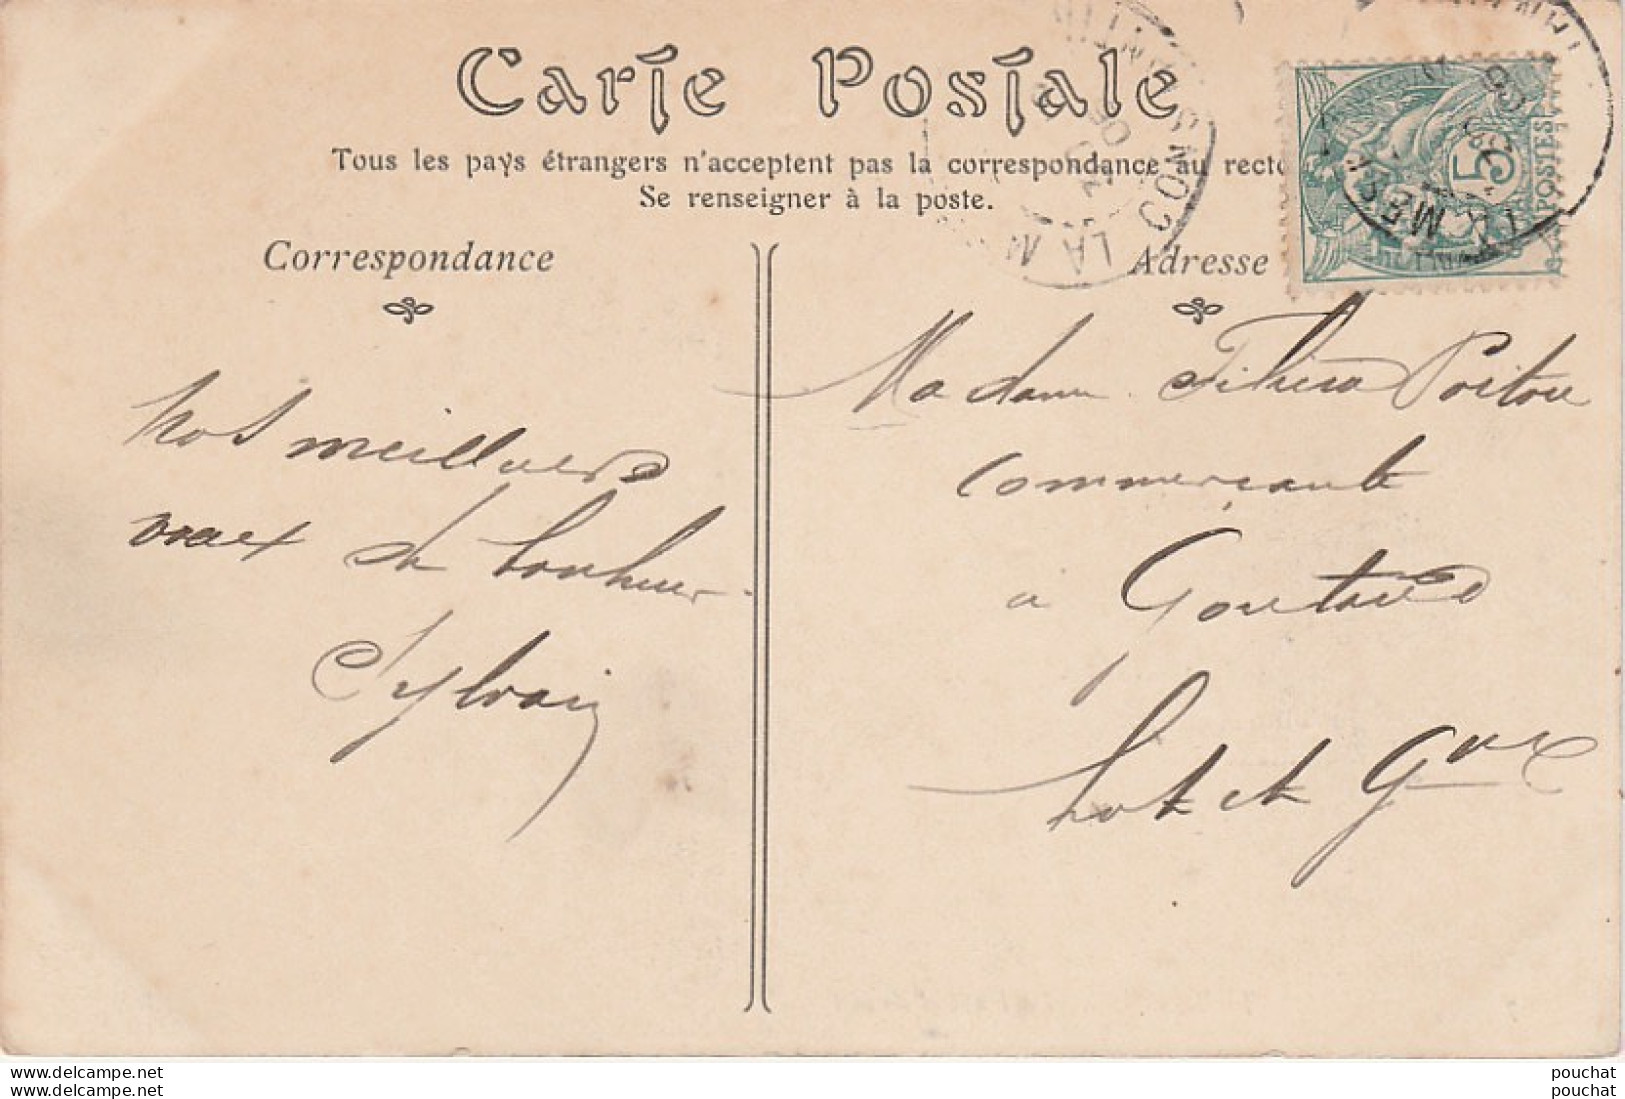 Carte Postale
Tous les pays étrangers n'acceptent pas la correspondance au recto
Se renseigner à la poste.
Correspondance
Adresse
5
POSTES
LA M
CONDS
Nos meilleurs
vœux de bonheur
Sylvain
Madame Poitou
Commerçante
a Gontaud
Lot et Gne
www.delcampe.net
pouchat
www.delcampe.net
pouchat